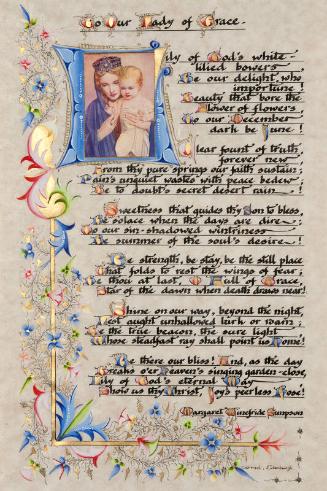 To Our Lady of Grace.
Lily of God's white-
lilied bowers,
Be our delight, who
importune!
Beauty that bore the
flower of flowers
Be our December
dark be June!
Clear fount of truth,
forever new,
From thy pure springs our faith sustain;
Pain's unquiet wastes with peace bedew;
Be to doubt's secret desert rain!
Sweetness that guides thy Son to bless,
Be solace when the days are dire;
To our sin-shadowed wintriness
Be summer of the soul's desire!
Be strength, be stay, be the still place
That folds to rest the wings of fear;
Be thou at last, O Full of Grace,
Star of the dawn when death draws near!
Shine on our way, beyond the night,
Lest aught unhallowed lurk or roam;
Be the true beacon, the sure light
Whose steadfast ray shall point us Home!
Be there our bliss! And, as the day
Breaks o'er Heaven's singing garden-close,
Lily of God's eternal May
Show us thy Christ, Joy's peerless Rose!
Margaret Winefride Simpson